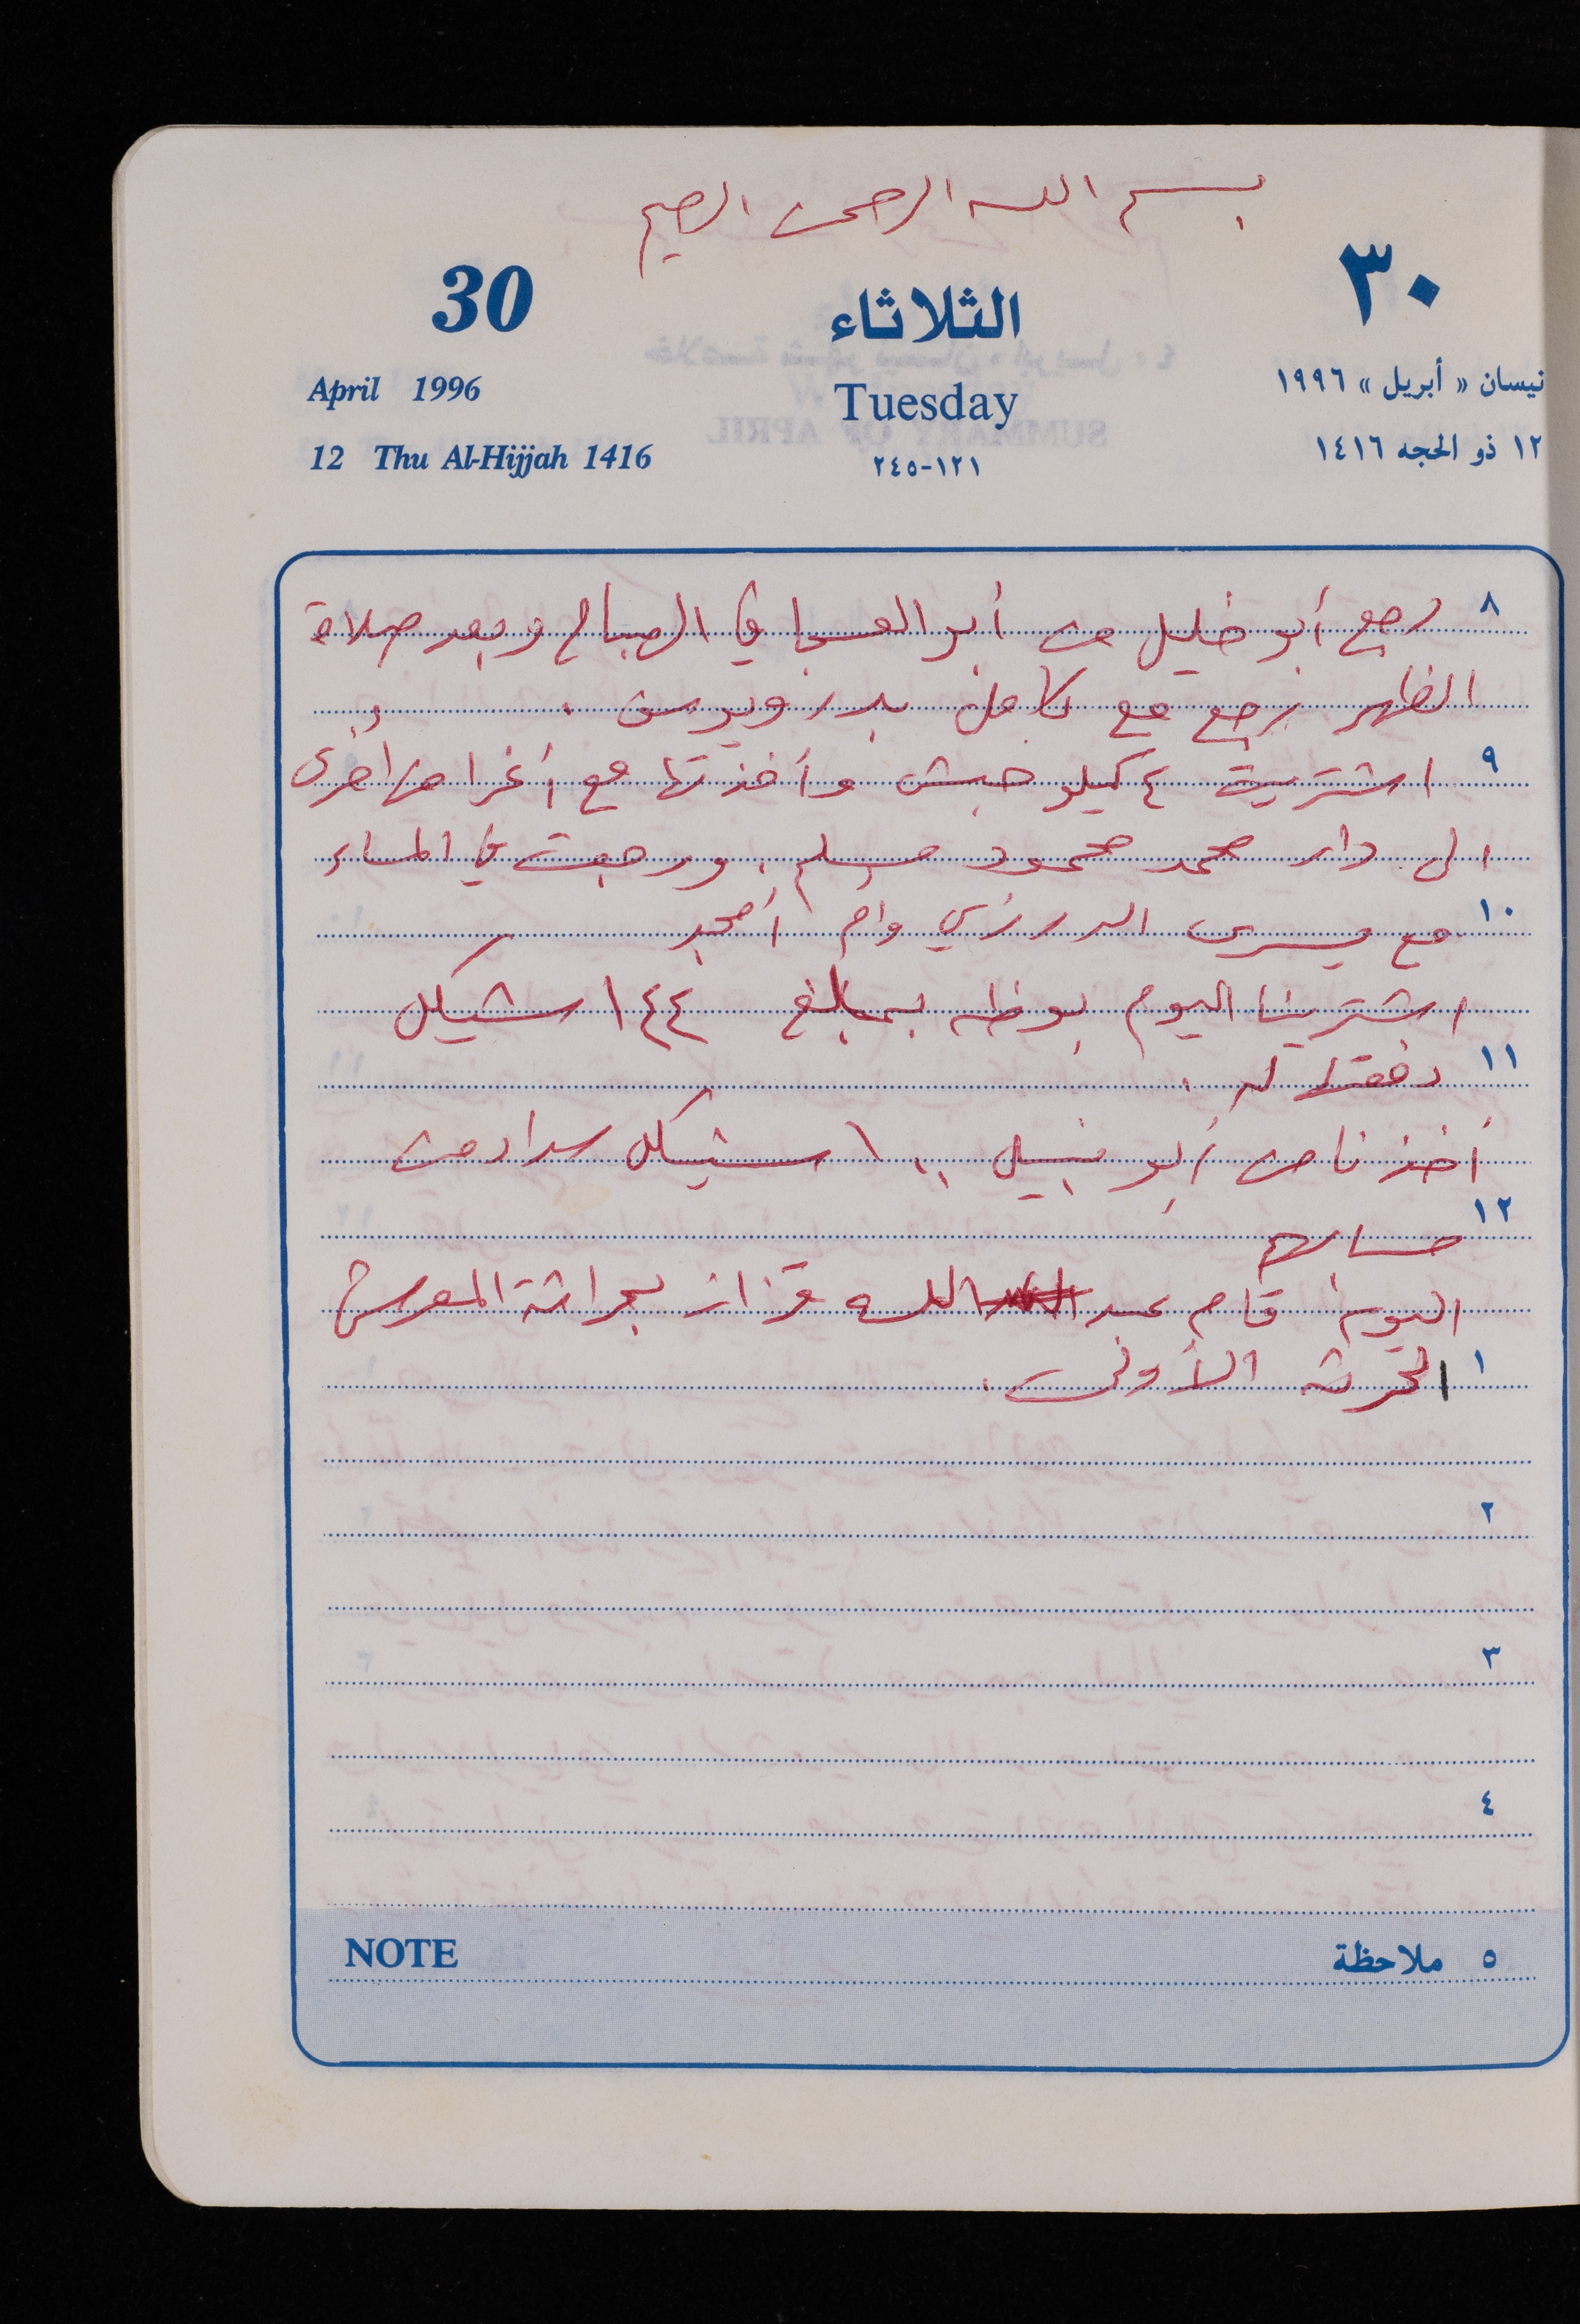 بسم الله الرحمن الرحيم
30 الثلاثاء ٣٠
April 1996 Tuesday نيسان « أبريل » ١٩٩٦
12 Thu Al-Hijjah 1416 ١٢١-٢٤٥ ١٢ ذو الحجه ١٤١٦
٨ رجع أبو خليل من أبو العسجا في الصباح وبعد صلاة
الظهر رجع مع كامل بدر ويونس .
٩ اشتريت ٤ كيلو حبش وأخذتها مع أغراض أخرى
الى دار محمد محمود مسلم . ورجعت في المساء
١٠ مع يسرى الدرزي وام أمجد
اشترينا اليوم بوظه بمبالغ ١٤٤ شيكل
١١ دفعتلا له .
أخذنا من أبو نبيل ١٠٠ شيكل سداد من
١٢ حسابهم
اليوم قام عبد الله قزاز بحراثة المعرش
١ الحرثه الأولى .
٢
٣
٤
NOTE ٥ ملاحظة